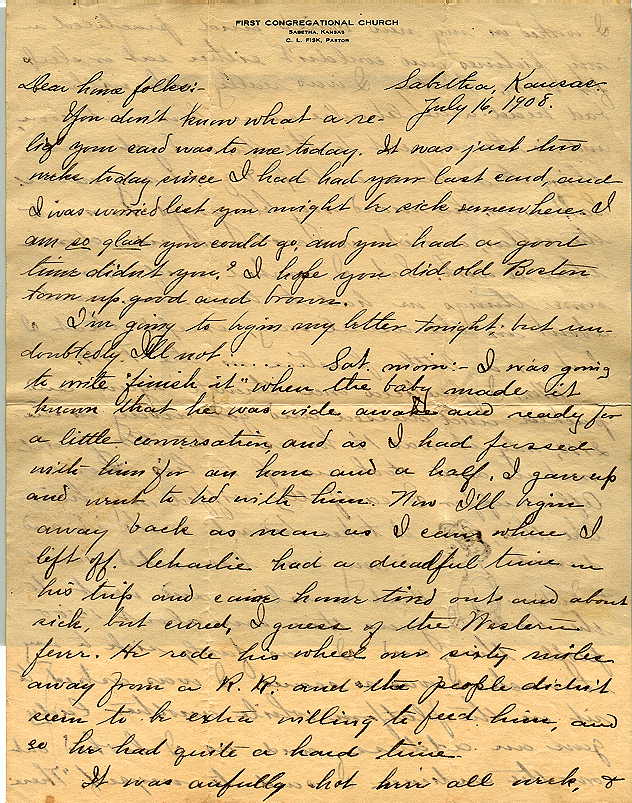 FIRST CONGREGATIONAL CHURCH
SABETHA, KANSAS
C. L. FISK, PASTOR
Dear home folks:- Sabetha, Kansas.
July 16, 1908.
You don't know what a re-
lief your card was to me today. It was just two
weeks today since I had had your last card, and
I was worried lest you might be sick somewhere. I
am so glad you could go, and you had a good
time didn't you? I hope you did old Boston
town up good and brown.
I'm going to begin my letter tonight but un-
doubtedly I'll not ........ Sat. morn:- I was going
to write "finish it" when the baby made it
known that he was wide awake and ready for
a little conversation and as I had fussed
with him for an hour and a half, I gave up
and went to bed with him. Now I'll begin
away back as near as I can where I
left off. Charlie had a dreadful time on
his trip and came home tired out and about
sick, but cured, I guess of the Western
fever. He rode his wheel over sixty miles
away from a R. R. and the people didn't
seem to be extra willing to feed him, and
so he had quite a hard time.
It was awfully hot here all week, &